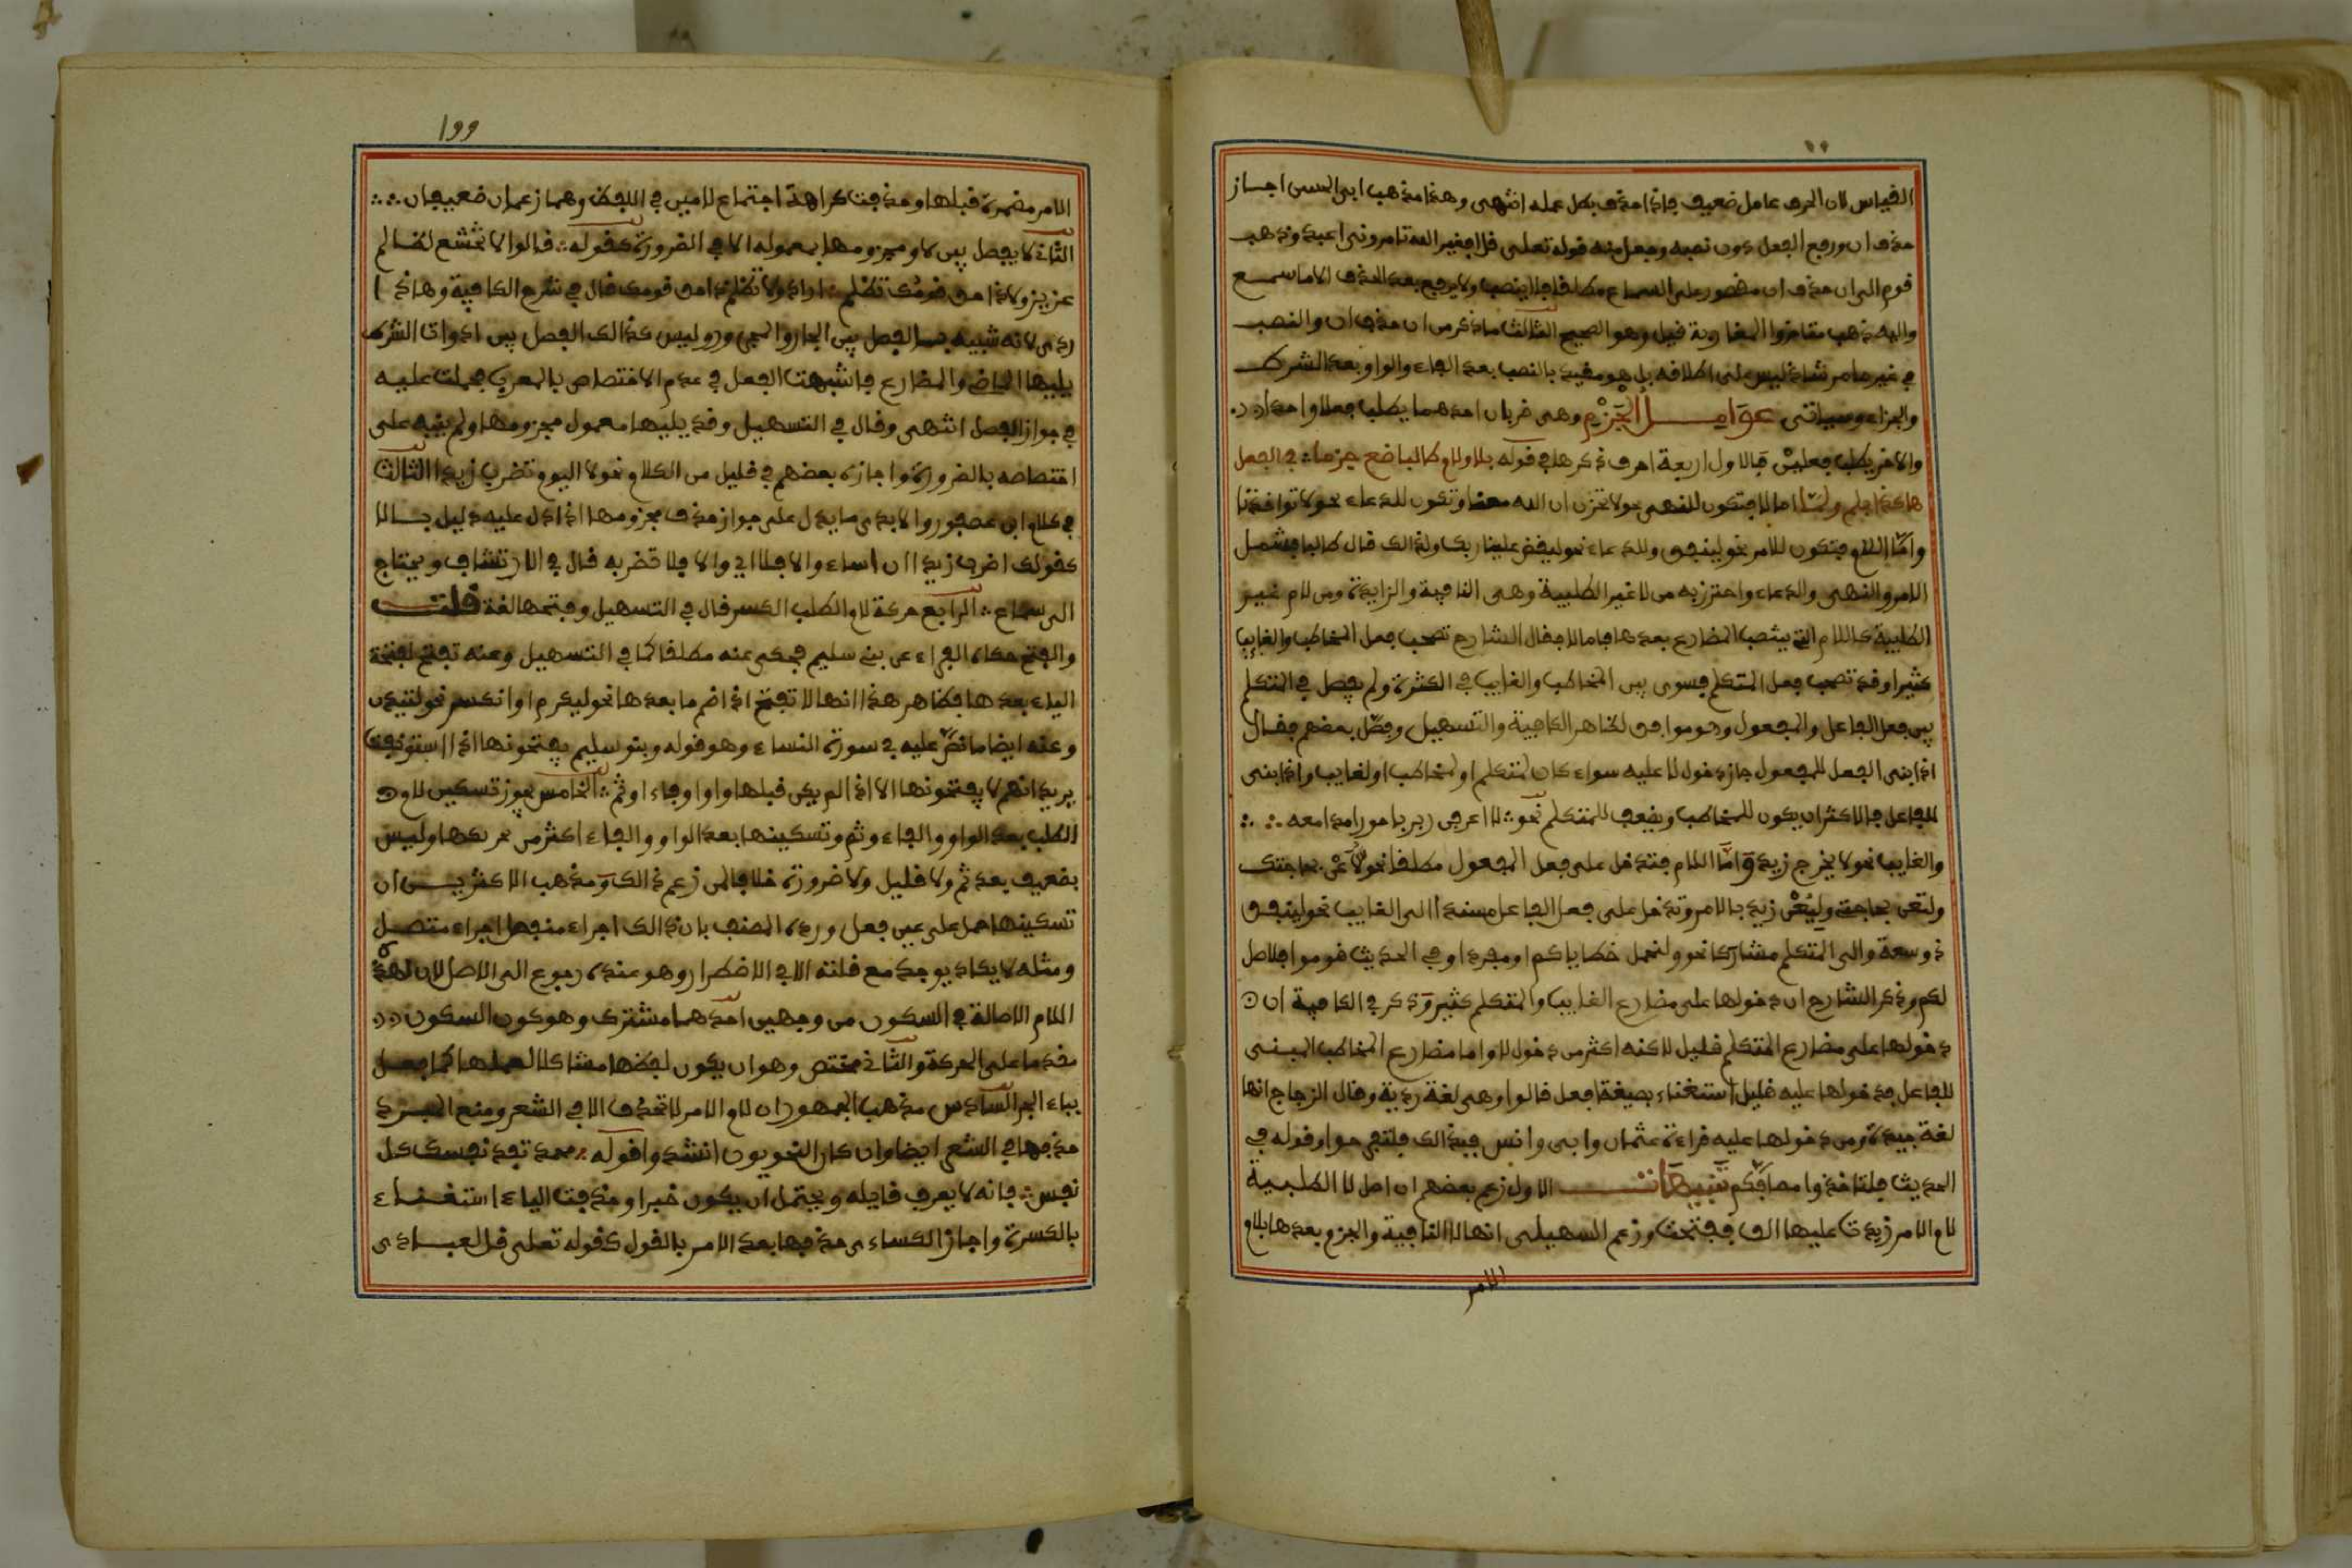 القياس لان الحرف عامل ضعيف فاذا حذف بطل عمله انتهى وهذا مذهب ابى الحسن اجاز
حذف ان ورفع الفعل دون نصبه وجعل منه قوله تعلى قل افغير الله تامرونى اعبد وذهب
قوم الى ان حذف ان مقصور على السماع مطلقا فلا ينصب ولا يرفع بعد الحذف الا ما سمع
واليه ذهب متاخروا المغاربة قيل وهو الصحيح الثالث ما ذكر من ان حذف ان والنصب
في غير ما مر شاذ ليس على اطلافه بل هو مقيد بالنصب بعد الفاء والواو بعد الشرط
والجزاء وسياتى عوامل الجزم وهى ضربان احدهما يطلب فعلا واحدا
والاخر يطلب فعلين فالاول اربعة احرف ذكرها في قوله بلا ولام طالبا ضع جزما في الفعل
هاكذا بلم ولما اما لا فتكون للنهى نحو لا تحزن ان الله معنا وتكون للدعاء نحو لا تواخذنا
واما اللام فتكون للامر نحو لينفق وللدعاء نحو ليقض علينا ربك ولذالك قال طالبا فشمل
الامر والنهى والدعاء واحترز به من لا غير الطلبية وهى النافية والزايدة ومن لام غير
الطلبية كاللام التي ينتصب المضارع بعدها فاما لا فقال الشارح تصحب فعل المخاطب والغايب
كثيرا وقد تصحب فعل المتكلم فسوى بين المخاطب والغايب في الكثرة ولم يفصل في المتكلم
بين فعل الفاعل والمفعول وهو موافق لظاهر الكافية والتسهيل وفصل بعضهم فقال
اذا بنى الفعل للمفعول جاز دخول لا عليه سواء كان لمتكلم او لمخاطب او لغايب واذا بنى
للفاعل فالاكثر ان يكون للمخاطب ويضعف للمتكلم نحو لا اعرفن ربربا حورا مدامعه
والغايب نحو لا يخرج زيد واما اللام فتدخل على فعل المفعول مطلقا نحو لاعن بحاجتك
ولتعن بحاجتي وليعن زيد بالامر وتدخل على فعل الفاعل مسندا الى الغايب نحو لينفق
ذو سعة والى المتكلم مشاركا نحو ولنحمل خطاياكم او مجردا وفي الحديث قوموا فلاصل
لكم وذكر الشارح ان دخولها على مضارع الغايب والمتكلم كثير وذكر في الكافية ان
دخولها على مضارع المتكلم قليل لاكنه اكثر من دخول لا واما مضارع المخاطب المبنى
للفاعل فدخولها عليه قليل استغناء بصيغة افعل قالوا وهى لغة ردية وقال الزجاج انها
لغة جيدة ومن دخولها عليه قراءة عثمان وابى وانس فبذالك فلتفرحوا وقوله في
الحديث فلتاخذوا مصافكم تنبيهات الاول زعم بعضهم ان اصل لا الطلبية
لام الامر زيدت عليها الف ففتحت وزعم السهيلى انها لا النافية والجزم بعدها بلام
الامر
199
الامر مضمرة قبلها وحذفت كراهة اجتماع لامين في اللفظ وهما زعمان ضعيفان
الثاني لا يفصل بين لا ومجزومها بمعموله الا في الضرورة كقوله قالوا الا تخشع لظالم
عزيز ولا ذا حق قومك تظلم اراد ولا تظلم ذا حق قومك قال في شرح الكافية وهاذا
ردى لانه شبيه بالفصل بين الجار والمجرور وليس كذالك الفصل بين ادوات الشرط
يليها الماضي والمضارع فاشبهت الفعل في عدم الاختصاص بالمعرب فحملت عليه
في جواز الفصل انتهى وقال في التسهيل وقد يليها معمول مجزومها ولم ينبه على
اختصاصه بالضرورة واجازه بعضهم في قليل من الكلام نحو لا اليوم تضرب زيدا الثالث
في كلام ابن عصفور والابدى ما يدل على جواز حذف مجزومها اذا دل عليه دليل
كقولك اضرب زيدا ان اساء والا فلا اي والا فلا تضربه قال في الارتشاف ويحتاج
الى سماع الرابع حركة لام الطلب الكسر قال في التسهيل وفتحها لغة قلت
والفتح حكاه الفراء عن بني سليم فحكى عنه مطلقا كما في التسهيل وعنه تفتح لفتحة
الياء بعدها فظاهر هذا انها لا تفتح اذا ضم ما بعدها نحو ليكرم او انكسر نحو لتيذن
وعنه ايضا ما نص عليه في سورة النساء وهو قوله وبنو سليم يفتحونها اذا استونفت
يريد انهم لا يفتحونها الا اذا لم يكن قبلها واو او فاء او ثم الخامس يجوز تسكين لام
الطلب بعد الواو والفاء وثم وتسكينها بعد الواو والفاء اكثر من تحريكها وليس
بضعيف بعد ثم ولا قليل ولا ضرورة خلافا لمن زعم ذالك ومذهب الاكثرين ان
تسكينها حمل على عين فعل ورده المصنف بان ذالك اجراء منفصل اجراء متصل
ومثله لا يكاد يوجد مع قلته الا في الاضطرار وهو عنده رجوع الى الاصل لان لهذه
اللام الاصالة في السكون من وجهين احدهما مشترك وهو كون السكون
مقدما على الحركة والثاني مختص وهو ان يكون لفظها مشاكلا لعملها كما فعل
بباء الجر السادس مذهب الجمهور ان لام الامر لا تحذف الا في الشعر ومنع المبرد
حذفها في الشعر ايضا وان كان النحويون انشدوا قوله محمد تفد نفسك كل
نفس فانه لا يعرف قايله ويحتمل ان يكون خبرا وحذفت الياء استغناء
بالكسرة واجاز الكساءى حذفها بعد الامر بالقول كقوله تعلى قل لعبادى